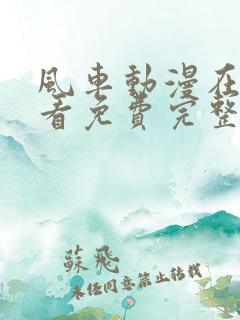 風車動漫在
看免費完整
蘇飛
未經同意禁止轉載